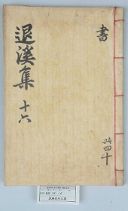 書
退溪集 十六
共四十